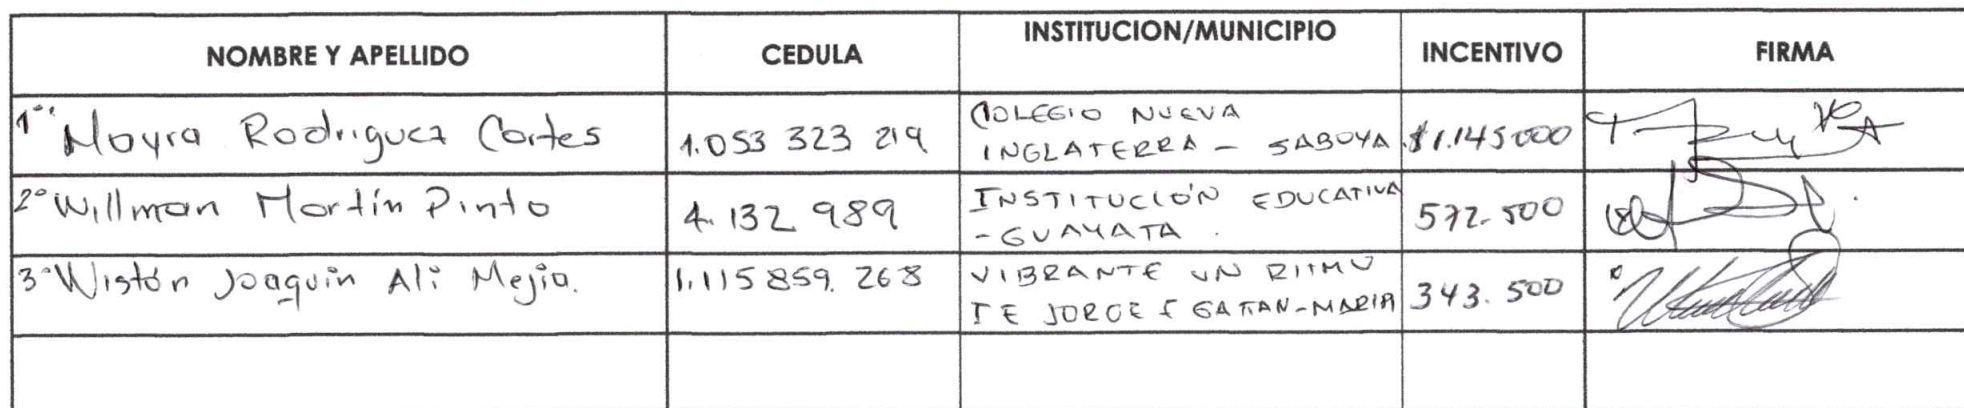 NOMBRE Y APELLIDO CEDULA INSTITUCION/MUNICIPIO INCENTIVO FIRMA
1º Mayra Rodriguez Cortes 1.053 323 219 COLEGIO NUEVA
INGLATERRA - SABOYA $1.145000
2º Willman Martín Pinto 4.132 989 INSTITUCIÓN EDUCATIVA
-GUAYATA. 572.500
3º Wistón Joaquin Ali Mejia. 1.115 859. 268 VIBRANTE UN RITMO
IE JORGE E GAITAN-MARIA 343.500